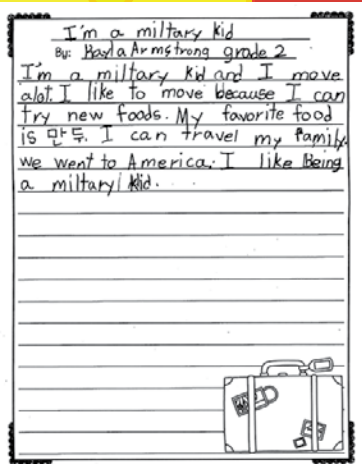 I'm a miltary kid
By: Kayla Armstrong grade 2
I'm a miltary kid and I move
alot. I like to move because I can
try new foods. My favorite food
is 만두. I can travel my family.
we went to America. I like Being
a miltary kid.